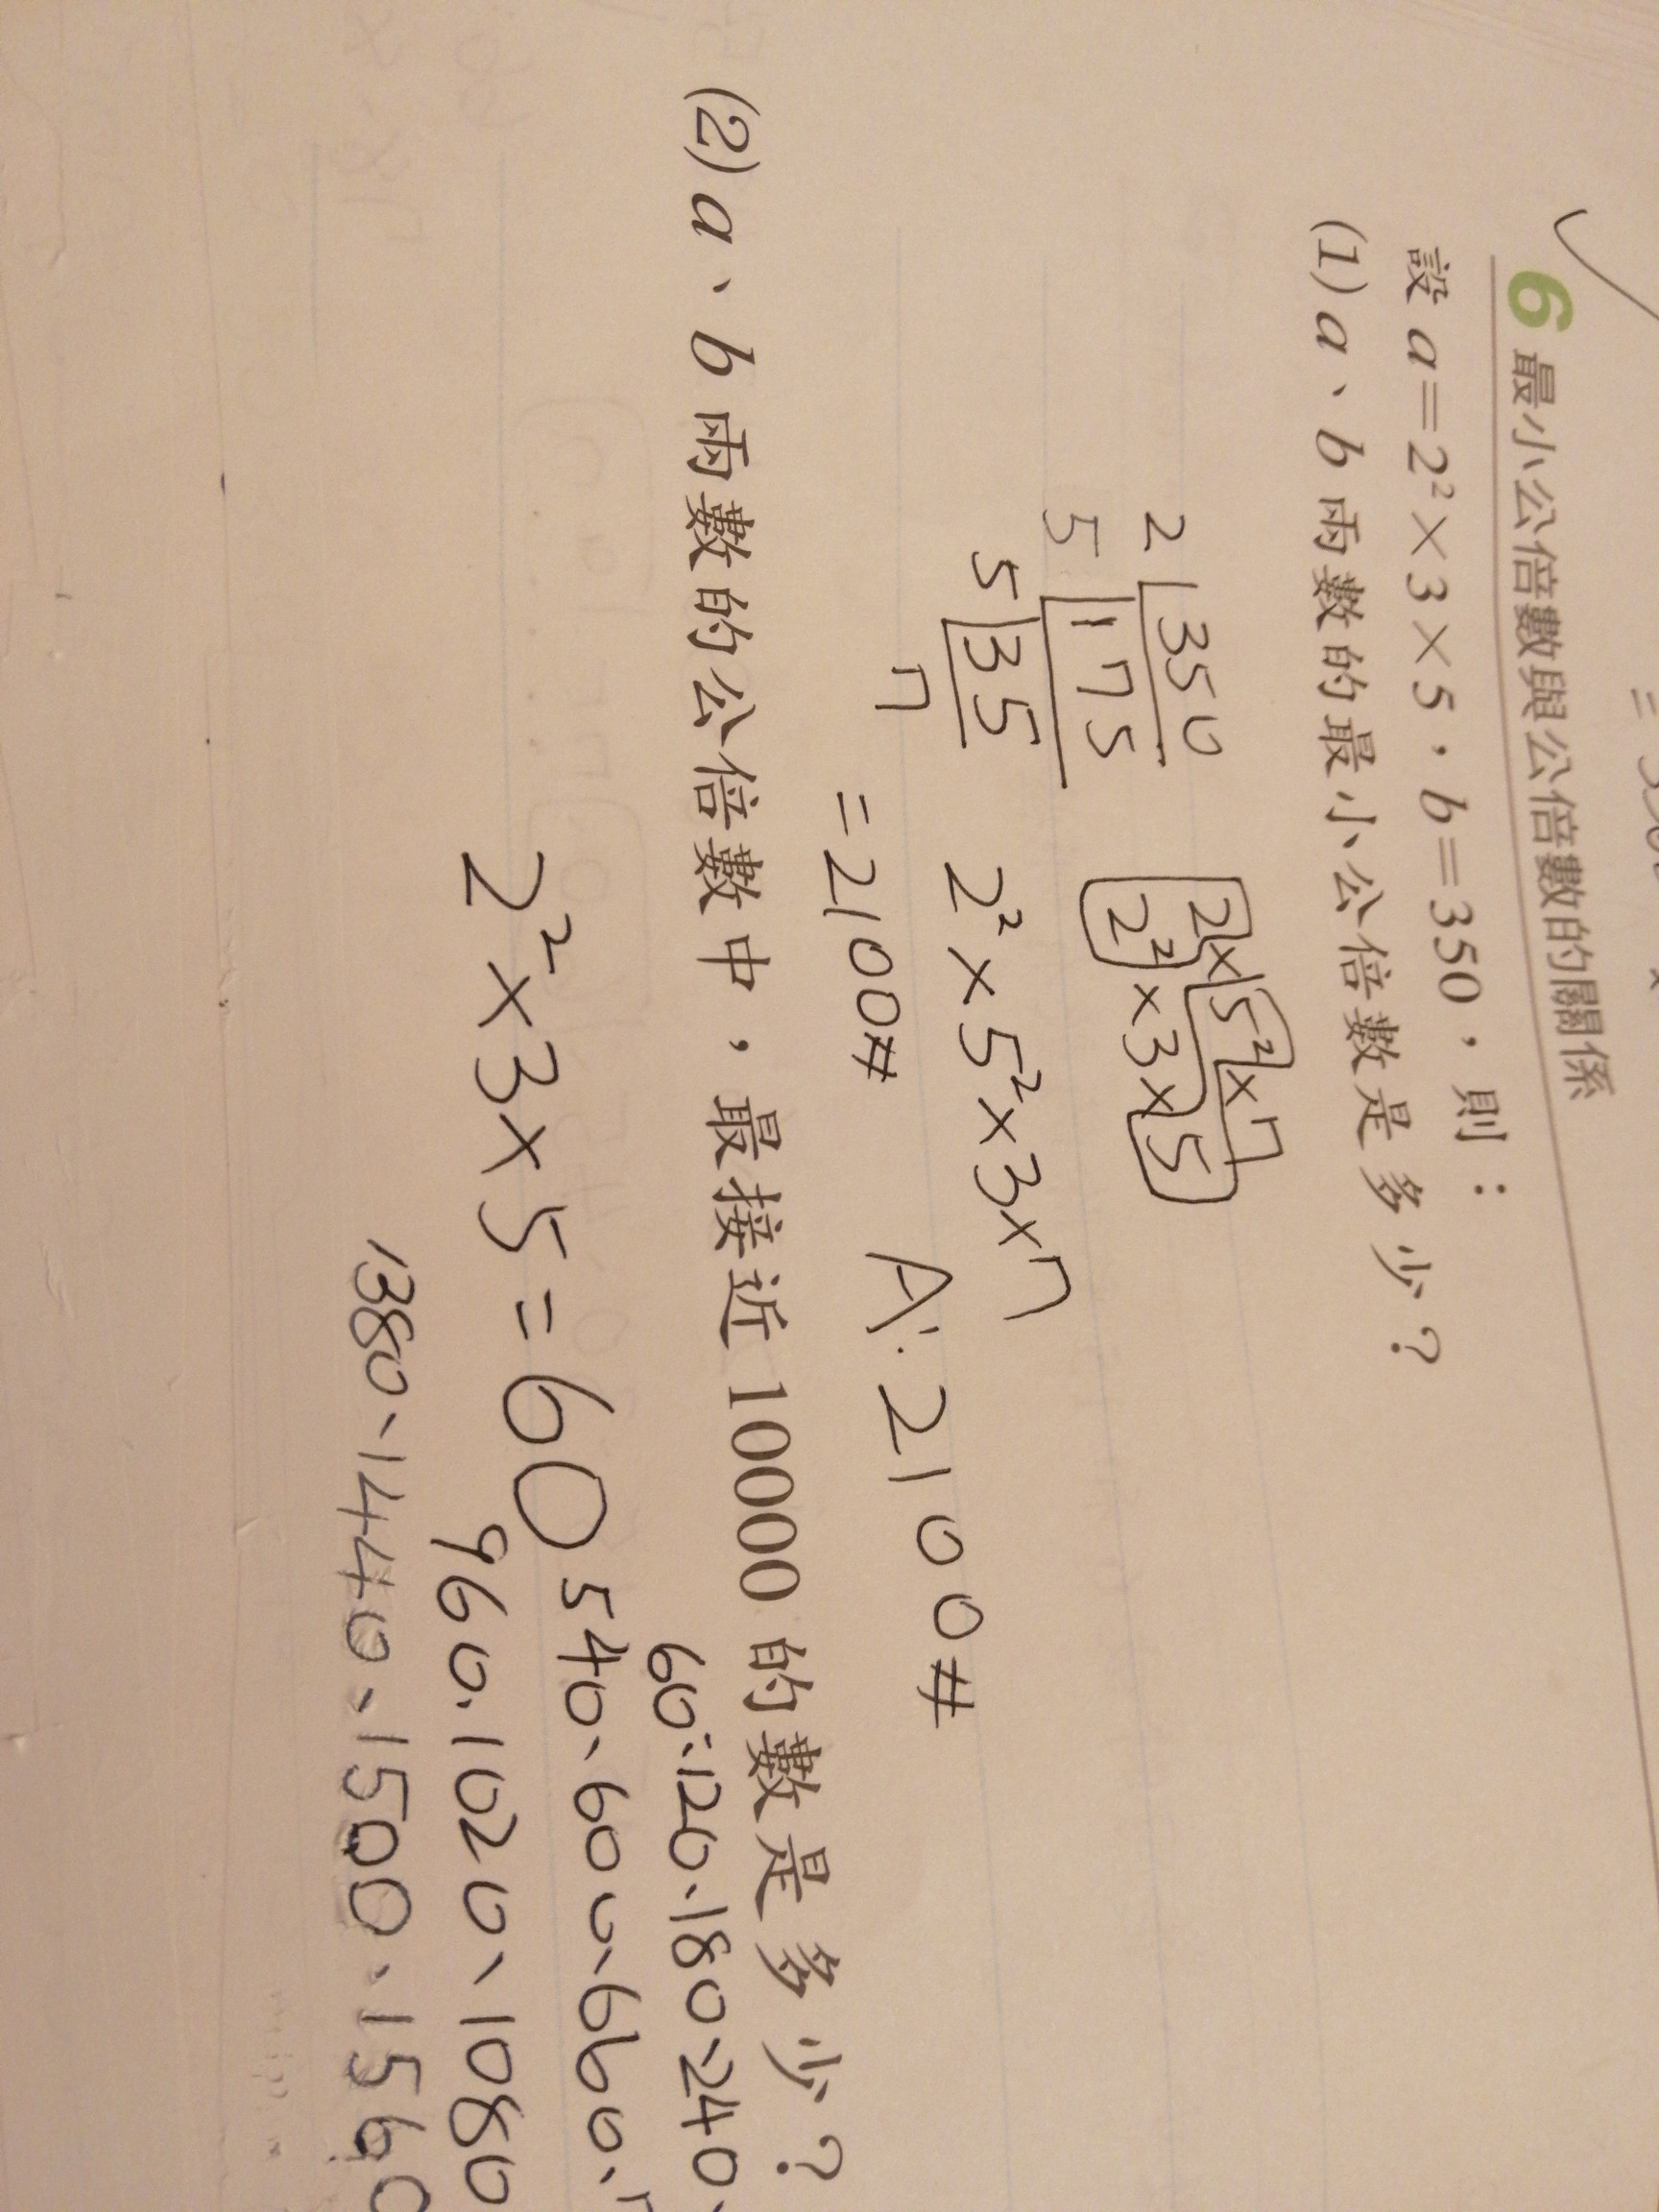 6 最小公倍數與公倍數的關係
設 a=2²×3×5，b=350，則：
(1) a、b 兩數的最小公倍數是多少？
2 350
5 175
5 35
7
2×5²×7
2²×3×5
2²×5²×3×7
=2100#
A:2100#
(2) a、b 兩數的公倍數中，最接近 10000 的數是多少？
60、120、180、240、
2²×3×5=60
540、600、660、
960、1020、1080
1380、1440、1500、1560